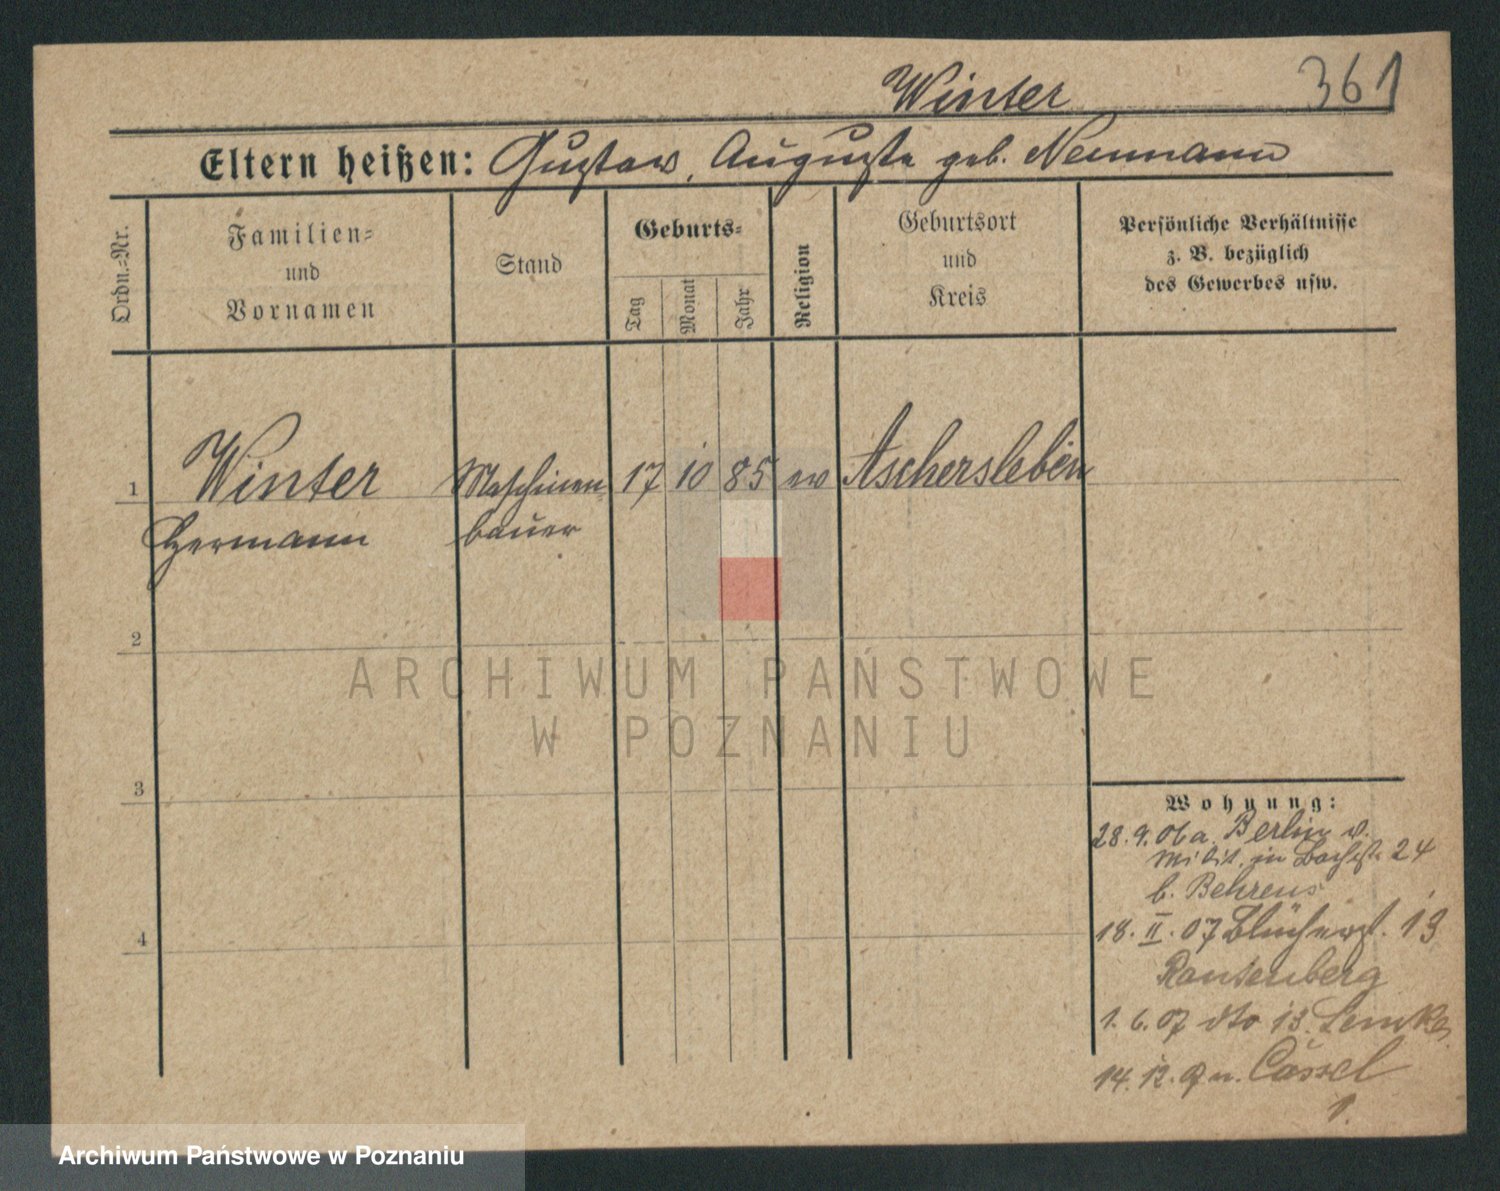 Winter 361
Eltern heißen: Gustav, Auguste geb. Neumann
Ordn.-Nr.
Familien-
und
Vornamen
Stand
Geburts-
Tag
Monat
Jahr
Religion
Geburtsort
und
Kreis
Persönliche Verhältnisse
z. B. bezüglich
des Gewerbes usw.
1 Winter Maschinen- 17 10 85 ev Aschersleben
Hermann bauer
2
3
4
Wohnung:
28. 9. 06 a. Berlin v.
Milit. in 24
b. Behrens
18. II. 07 Blücherst. 13
Rautenberg
1. 6. 07 dto 13. Lemke
14. 12. 07 n. Cassel
1.
ARCHIWUM PAŃSTWOWE
W POZNANIU
Archiwum Państwowe w Poznaniu